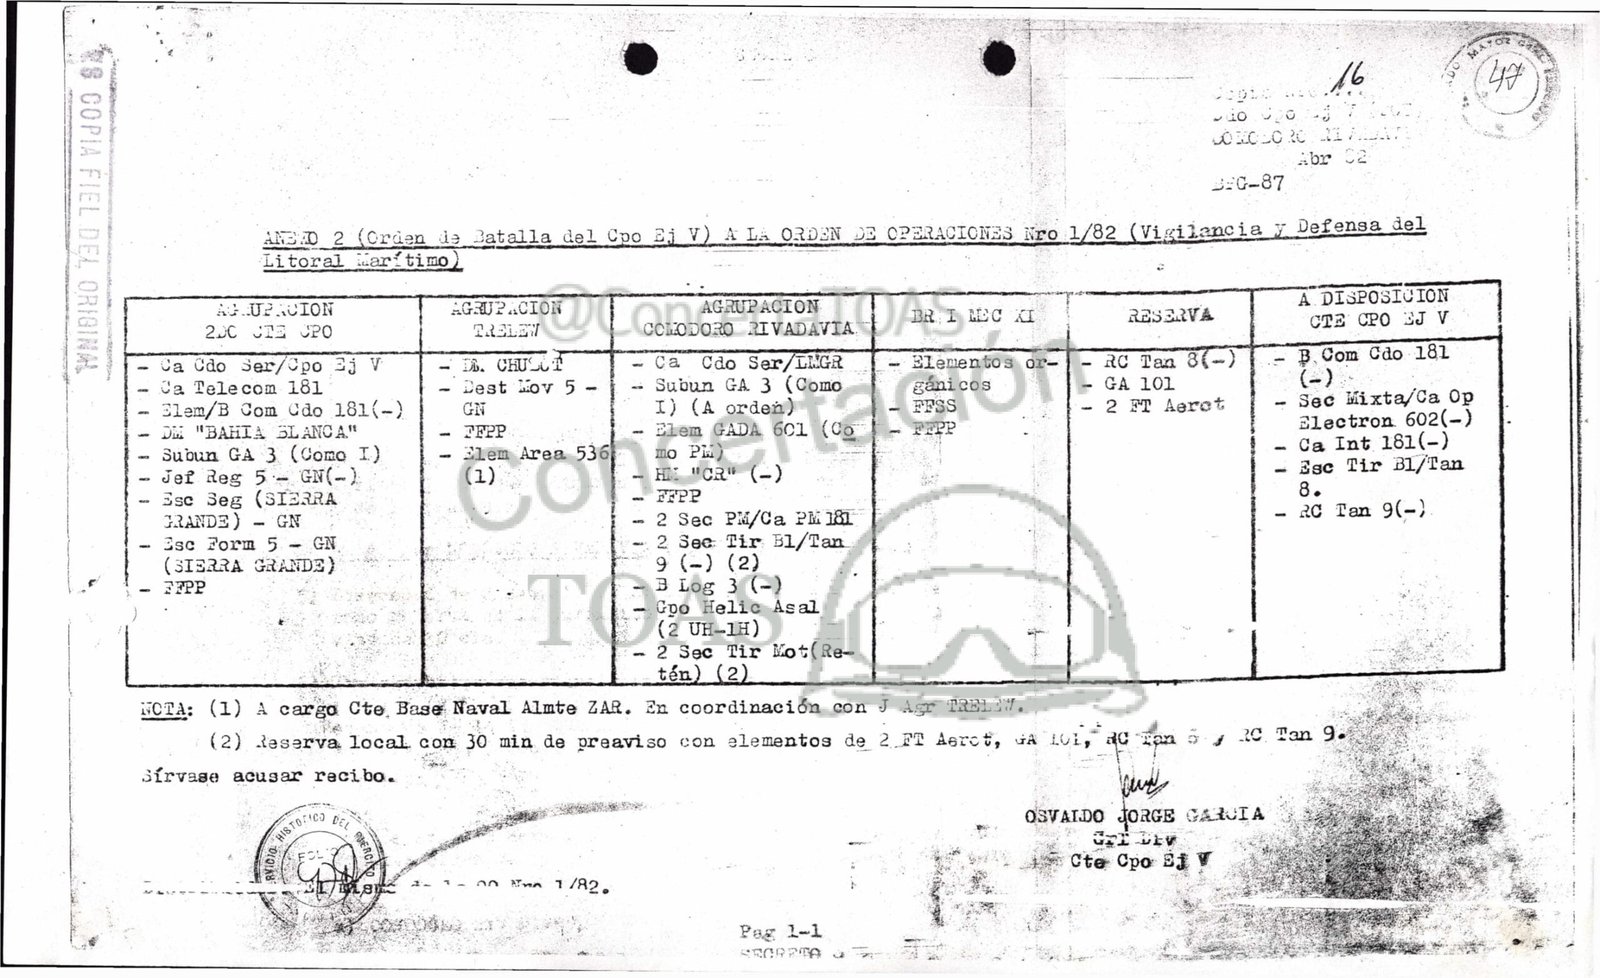 16
47
Abr 82
BFG-87
ES COPIA FIEL DEL ORIGINAL
ANEXO 2 (Orden de Batalla del Cpo Ej V) A LA ORDEN DE OPERACIONES Nro 1/82 (Vigilancia y Defensa del
Litoral Marítimo)
AGRUPACION
2DO CTE CPO
- Ca Cdo Ser/Cpo Ej V
- Ca Telecom 181
- Elem/B Com Cdo 181(-)
- DM "BAHIA BLANCA"
- Subun GA 3 (Como I)
- Jef Reg 5 - GN(-)
- Esc Seg (SIERRA
GRANDE) - GN
- Esc Form 5 - GN
(SIERRA GRANDE)
- FFPP
AGRUPACION
TRELEW
- DM. CHUBUT
- Dest Mov 5 -
GN
- FFPP
- Elem Area 536
(1)
AGRUPACION
COMODORO RIVADAVIA
- Ca Cdo Ser/LMGR
- Subun GA 3 (Como
I) (A orden)
- Elem GADA 601 (Co
mo PM)
- HM "CR" (-)
- FFPP
- 2 Sec PM/Ca PM 181
- 2 Sec Tir Bl/Tan
9 (-) (2)
- B Log 3 (-)
- Gpo Helic Asal
(2 UH-1H)
- 2 Sec Tir Mot(Re-
tén) (2)
BR I MEC XI
- Elementos or-
gánicos
- FFSS
- FFPP
RESERVA
- RC Tan 8(-)
- GA 101
- 2 FT Aerot
A DISPOSICION
CTE CPO EJ V
- B Com Cdo 181
(-)
- Sec Mixta/Ca Op
Electron 602(-)
- Ca Int 181(-)
- Esc Tir Bl/Tan
8.
- RC Tan 9(-)
@ConcertaTOAS
Concertación
TOAS
NOTA: (1) A cargo Cte Base Naval Almte ZAR. En coordinación con J Agr TRELEW.
(2) Reserva local con 30 min de preaviso con elementos de 2 FT Aerot, GA 101, RC Tan 8 y RC Tan 9.
Sírvase acusar recibo.
OSVALDO JORGE GARCIA
Grl Div
Cte Cpo Ej V
SERVICIO HISTORICO DEL EJERCITO
FOLIO
Nro 1/82.
Pag 1-1
SECRETO